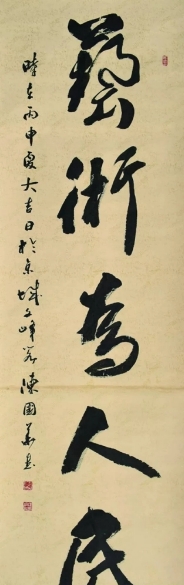 藝術為人民
時在丙申夏大吉日於京城文峰閣陳國義書